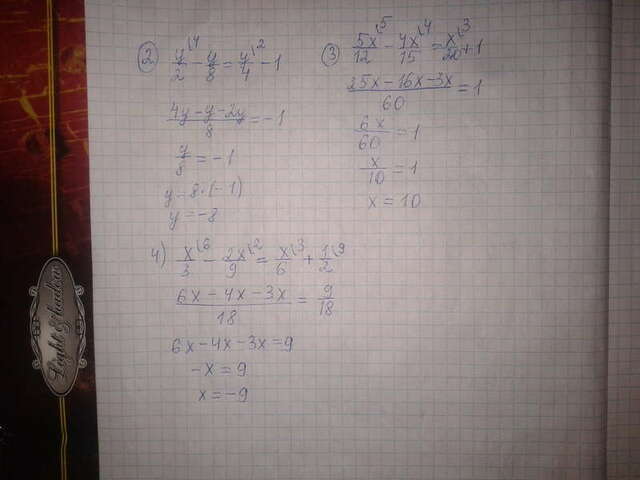 ② y/2\4 - y/8 = y/4\2 - 1
4y-y-2y/8 = -1
y/8 = -1
y = 8·(-1)
y = -8
③ 5x/12\5 - 4x/15\4 = x/20\3 + 1
25x-16x-3x/60 = 1
6x/60 = 1
x/10 = 1
x = 10
4) x/3\6 - 2x/9\2 = x/6\3 + 1/2\9
6x - 4x - 3x/18 = 9/18
6x - 4x - 3x = 9
-x = 9
x = -9
Light & shadow